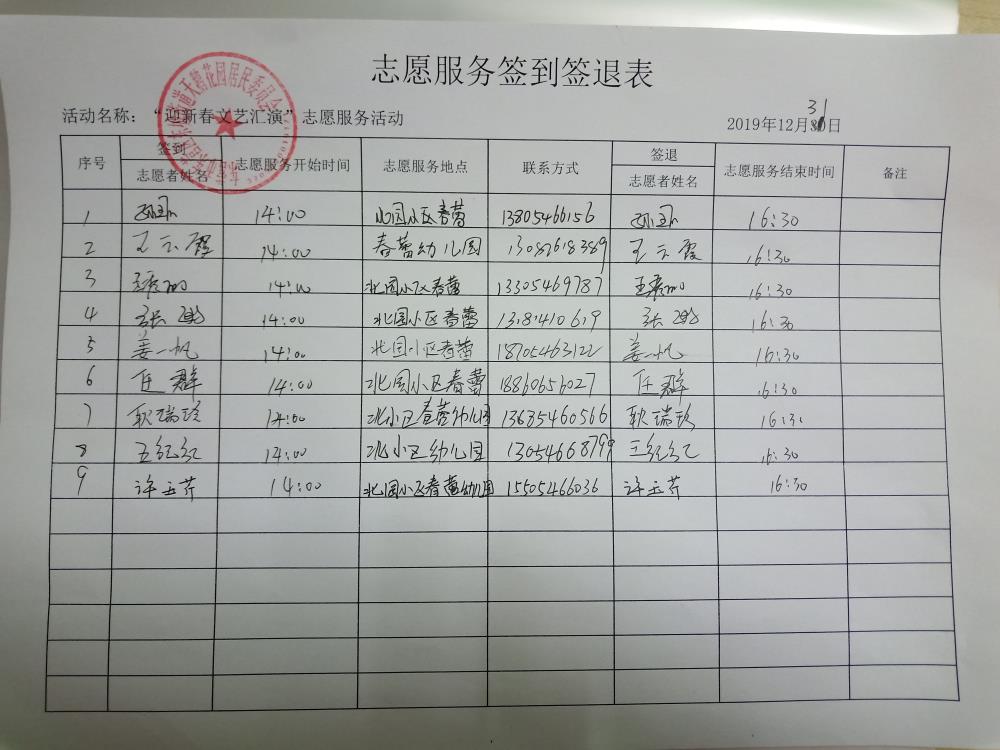 志愿服务签到签退表
活动名称：“迎新春文艺汇演”志愿服务活动
2019年12月31日
序号 签到 志愿者姓名 志愿服务开始时间 志愿服务地点 联系方式 签退 志愿者姓名 志愿服务结束时间 备注
1 14:00 北园小区春蕾 13805466156 16:30
2 王云霞 14:00 春蕾幼儿园 13082618389 王云霞 16:30
3 14:00 北园小区春蕾 13305469787 16:30
4 14:00 北园小区春蕾 16:30
5 姜一帆 14:00 北园小区春蕾 18705463122 姜一帆 16:30
6 任群 14:00 北园小区春蕾 18860656027 任群 16:30
7 耿瑞玲 14:00 北小区春蕾幼儿园 13685460566 耿瑞玲 16:30
8 王红红 14:00 北小区幼儿园 13054668799 王红红 16:30
9 许玉芹 14:00 北园小区春蕾幼儿园 15505466036 许玉芹 16:30